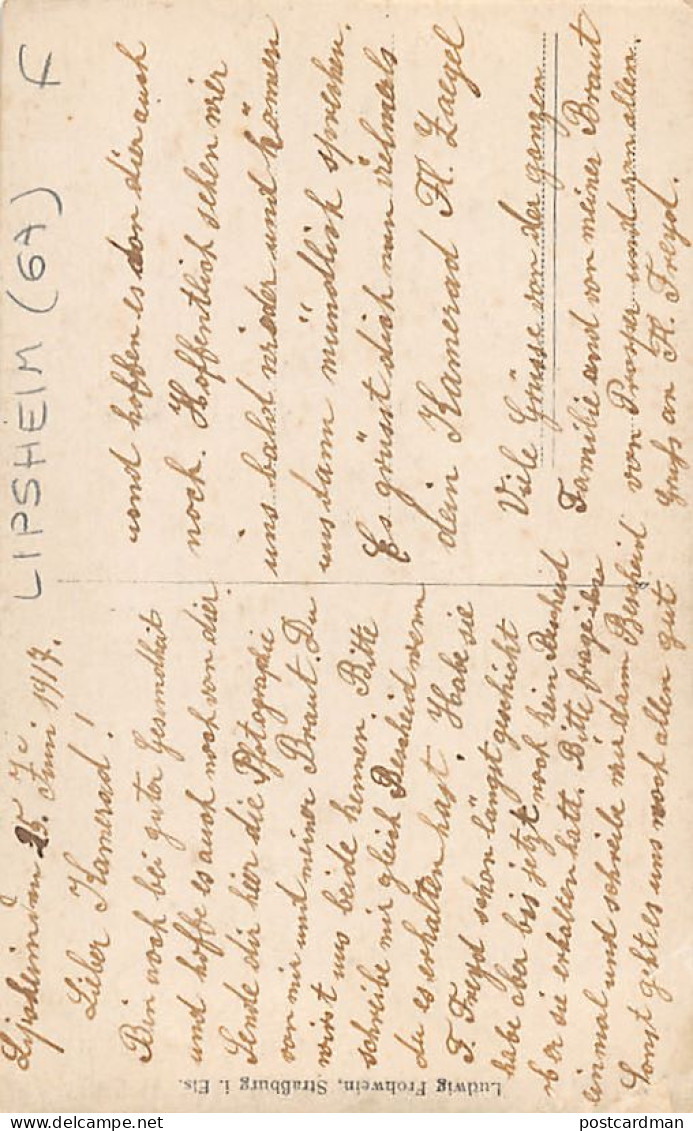 LIPSHEIM (67) F
Lipsheim 25. Juni 1917.
Lieber Kamerad!
Bin noch bei guter Gesundheit
und hoffe es auch noch von dier.
Sende dir hier die Photographie
von mir und meiner Braut. Du
wirst uns beide kennen. Bitte
schreibe mir gleich Bescheid wem
du es erhalten hast. Habe sie
F. Freyd schon längst geschickt
habe aber bis jetzt noch kein Bescheid
ob er sie erhalten hatt. Bitte frage ihn
einmal und schreibe mir dann Bescheid
Sonst geht es uns noch allen gut
und hoffen es von dier auch
noch. Hoffentlich sehen wir
uns bald wieder und können
uns dann mündlich sprechen.
Es grüsst dich nun vielmals
dein Kamerad H. Zaegel
Viele Grüsse von der ganzen
Familie und von meiner Braut
von Prosper und von allen
Gruss an H. Freyd.
Ludwig Frohwein, Straßburg i. Els.
postcardman